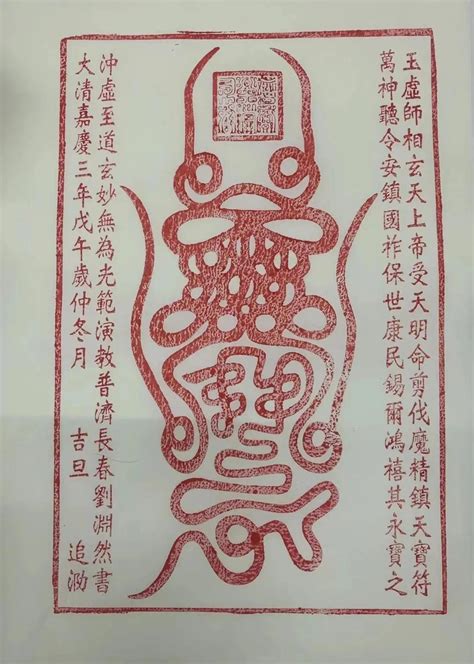 玉虛師相玄天上帝受天明命剪伐魔精鎮天寶符
萬神聽令安鎮國祚保世康民錫爾鴻禧其永寶之
沖虛至道玄妙無為光範演教普濟長春劉淵然書
大清嘉慶三年戊午歲仲冬月 吉旦 追泐